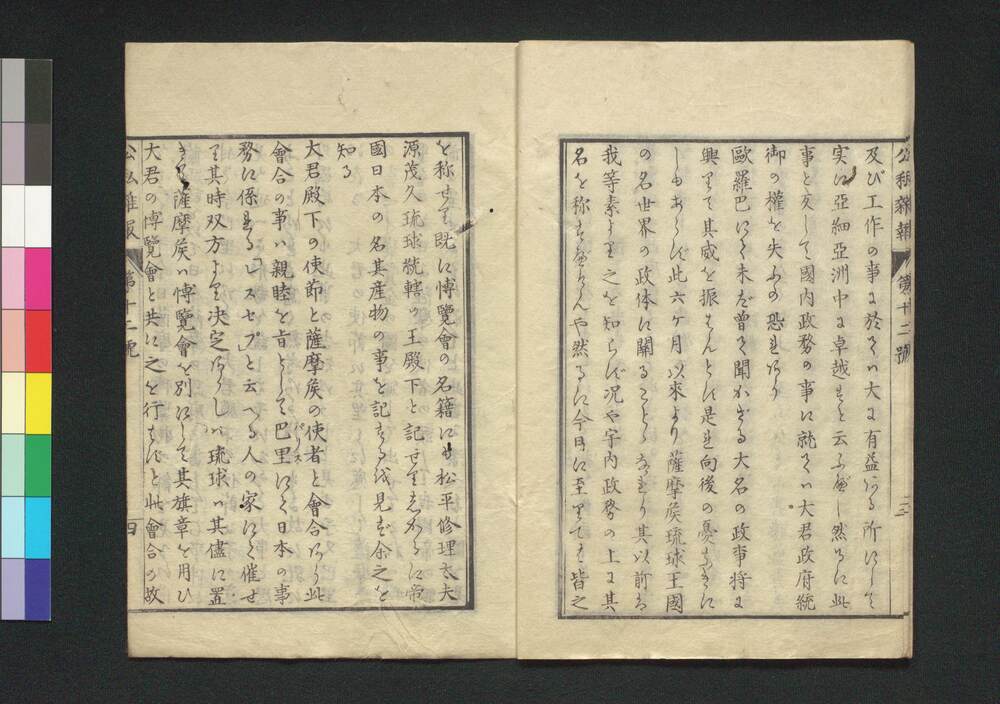 公私雜報 第十二號 三
及び工作の事に於てハ大に有益なる所にして
実に亞細亞洲中に卓越すと云ふべし然るに此
事と反して國内政務の事に就てハ大君政府統
御の權を失ふの恐れあり
歐羅巴にて未だ曾て聞かざる大名の政事将に
興りて其威を振はんとす是れ向後の憂なきに
しもあらず此六ヶ月以來より薩摩侯琉球王國
の名世界の政体に關ることゝなれり其以前は
我等素より之を知らず況や宇内政務の上に其
名を称すべけんや然るに今日に至りてハ皆之
を称せり既に博覽會の名籍にも松平修理大夫
源茂久琉球統轄の王殿下と記せり又あるに帝
國日本の名其産物の事を記せるを見ず余之を
知る
大君殿下の使節と薩摩侯の使者と會合あり此
會合の事ハ親睦を旨として巴里にて日本の事
パリス
務に係れる「レスセプ」と云へる人の家にて催せ
り其時双方より決定ありしハ琉球ハ其儘に置
き薩摩侯ハ博覽會を別にして其旗章を用ひ
大君の博覽會と共に之を行はずと此會合の故
公私雜報 第十二號 四